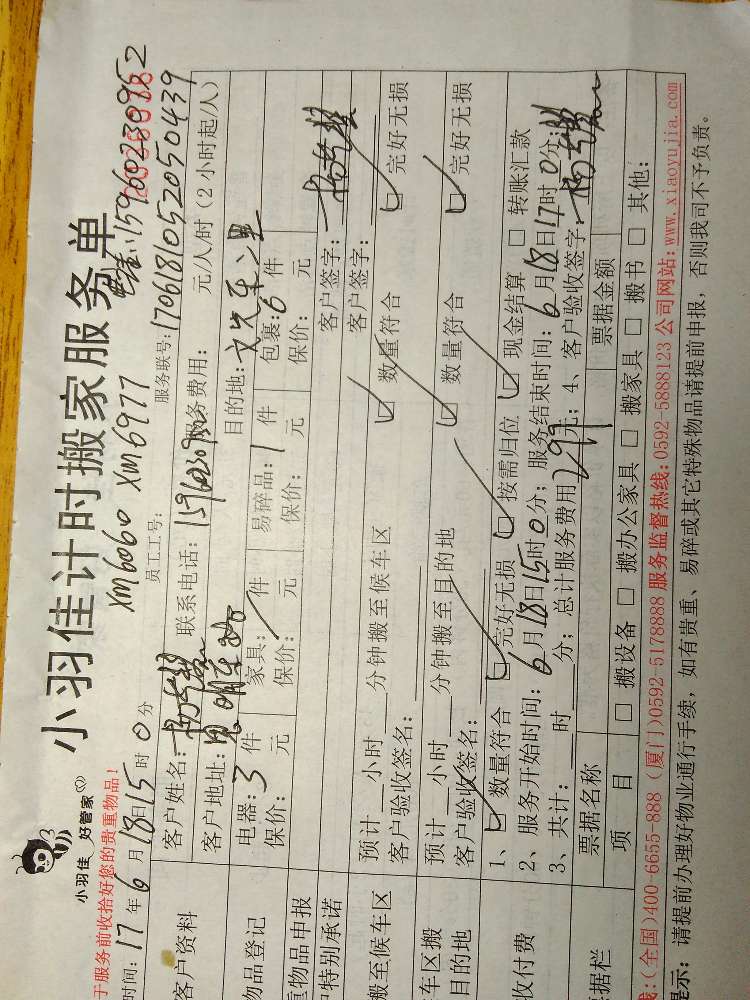 小羽佳 好管家
小羽佳计时搬家服务单
于服务前收拾好您的贵重物品!
XM6060 XM6977
15960230952
时间: 17年6月18日15时0分 员工工号: 服务联号: 170618105205 0439
客户资料 客户姓名: 联系电话: 服务费用: 元/人/时 (2小时起/人)
客户地址: 目的地:
物品登记 电器: 3件 家具: 1件 易碎品: 1件 包裹: 6件
保价: 元 保价: 元 保价: 元 保价: 元
重物品申报 客户签字:
特别承诺 客户签字:
搬至候车区 预计 小时 分钟搬至候车区
客户验收签名: ☑ 数量符合 ☑ 完好无损
车区搬 预计 小时 分钟搬至目的地
目的地 客户验收签名: ☑ 数量符合 ☑ 完好无损
收付费 1、☑ 数量符合 ☑ 完好无损 ☑ 按需归位 ☑ 现金结算 □ 转账汇款
2、服务开始时间: 6月18日15时0分; 服务结束时间: 6月18日17时0分;
3、共计: 时 分; 总计服务费用 299元; 4、客户验收签字:
据栏 票据名称 票据金额
项目 □ 搬设备 □ 搬办公家具 □ 搬家具 □ 搬书 □ 其他:
线:(全国)400-6655-888 (厦门)0592-5178888 服务监督热线:0592-5888123 公司网站:www.xiaoyujia.com
提示: 请提前办理好物业通行手续, 如有贵重、易碎或其它特殊物品请提前申报, 否则我司不予负责。